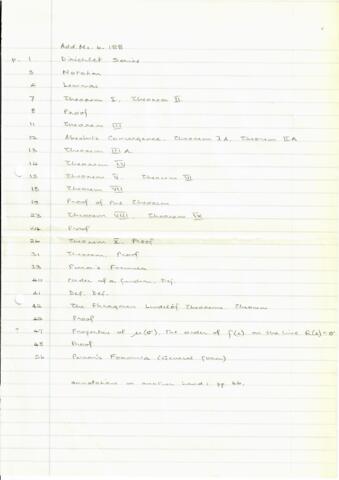 Add. Ms. b. 188
p. 1 Dirichlet Series
3 Notation
4 Lemmas
7 Theorem I, Theorem II
8 Proof
11 Theorem III
12 Absolute Convergence, Theorem IA, Theorem IIA
13 Theorem III A
14 Theorem IV
15 Theorem V, Theorem VI
18 Theorem VII
19 Proof of the Theorem
23 Theorem VIII, Theorem IX
24 Proof
26 Theorem X, Proof
31 Theorem, Proof
39 Perron's Formula
40 Order of a function. Def.
41 Def. Def.
42 The Phragmen Lindelöf Theorems. Theorem
Proof
47 Properties of μ(σ). The order of f(s) on the line R(s)=σ
48 Proof
56 Perron's Formula (General form)
annotations in another hand: pp.